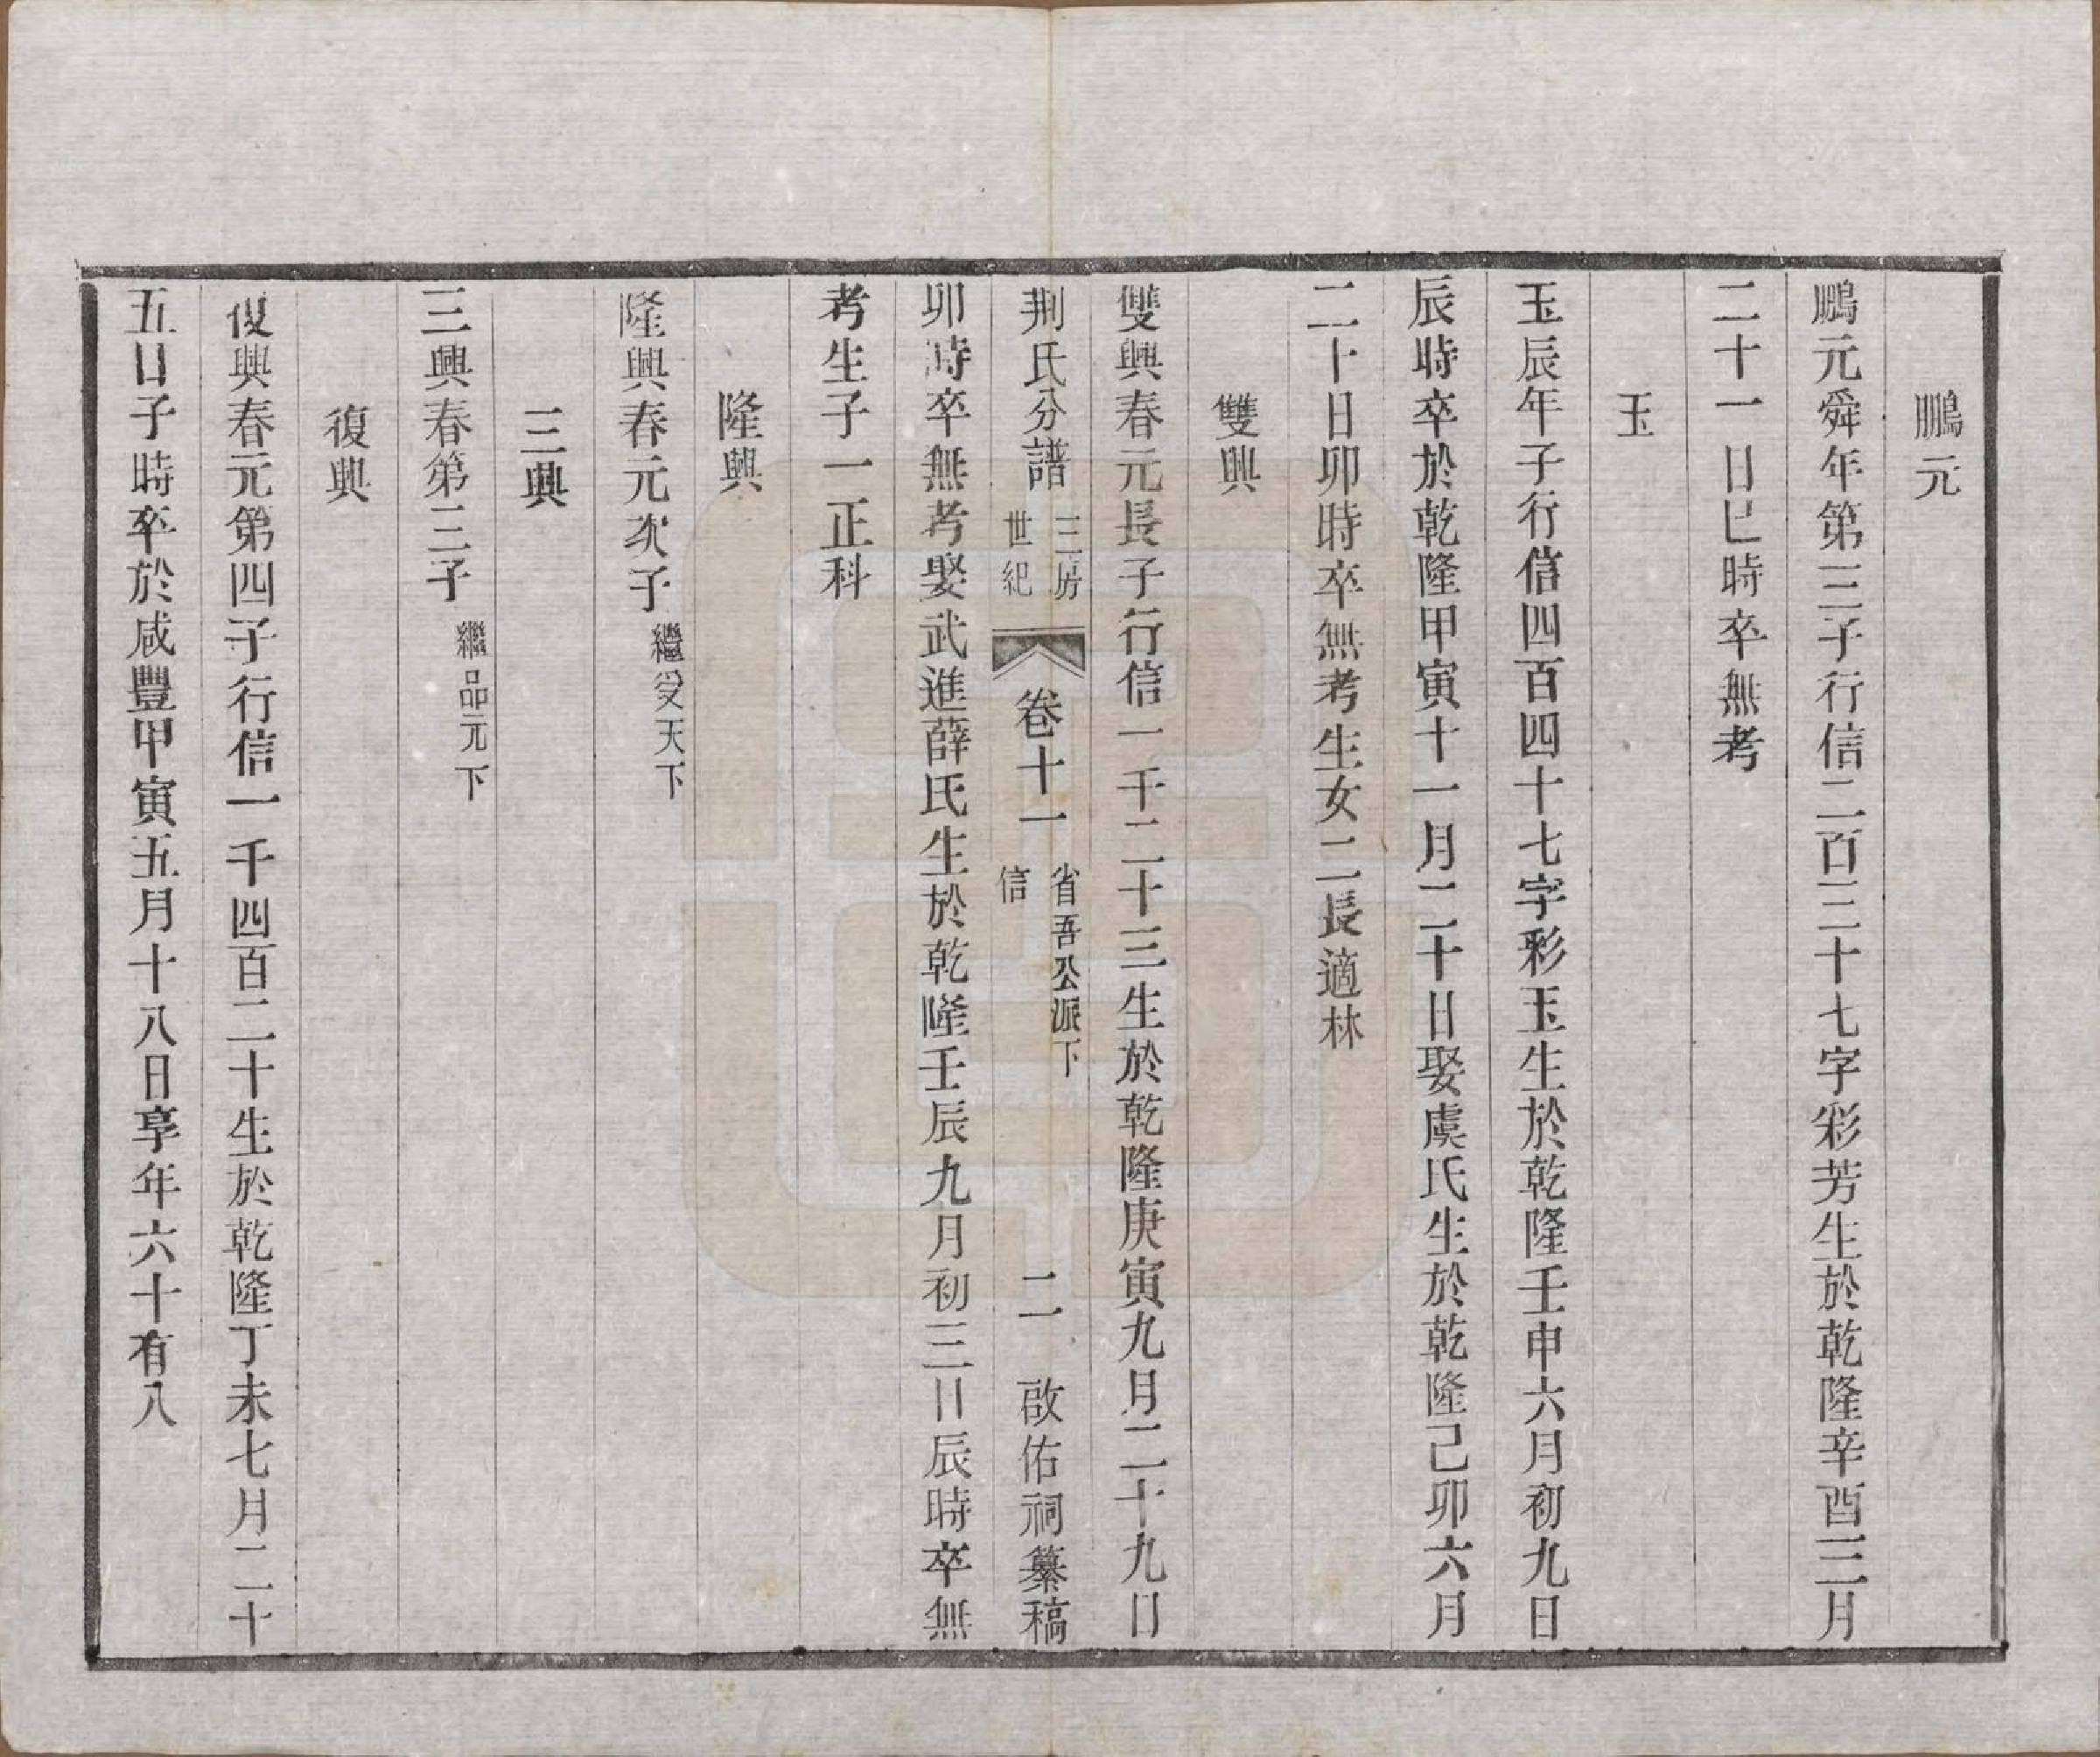 鵬元
鵬元舜年第三子行信二百三十七字彩芳生於乾隆辛酉三月
二十一日巳時卒無考
玉
玉辰年子行信四百四十七字彩玉生於乾隆壬申六月初九日
辰時卒於乾隆甲寅十一月二十日娶虞氏生於乾隆己卯六月
二十日卯時卒無考生女二長適林
雙興
雙興春元長子行信一千二十三生於乾隆庚寅九月二十九日
荆氏分譜 三房世紀 卷十一 省吾公派下信 二 啟佑祠纂稿
卯時卒無考娶武進薛氏生於乾隆壬辰九月初三日辰時卒無
考生子一正科
隆興
隆興春元次子 繼受天下
三興
三興春第三子 繼品元下
復興
復興春元第四子行信一千四百二十生於乾隆丁未七月二十
五日子時卒於咸豐甲寅五月十八日享年六十有八